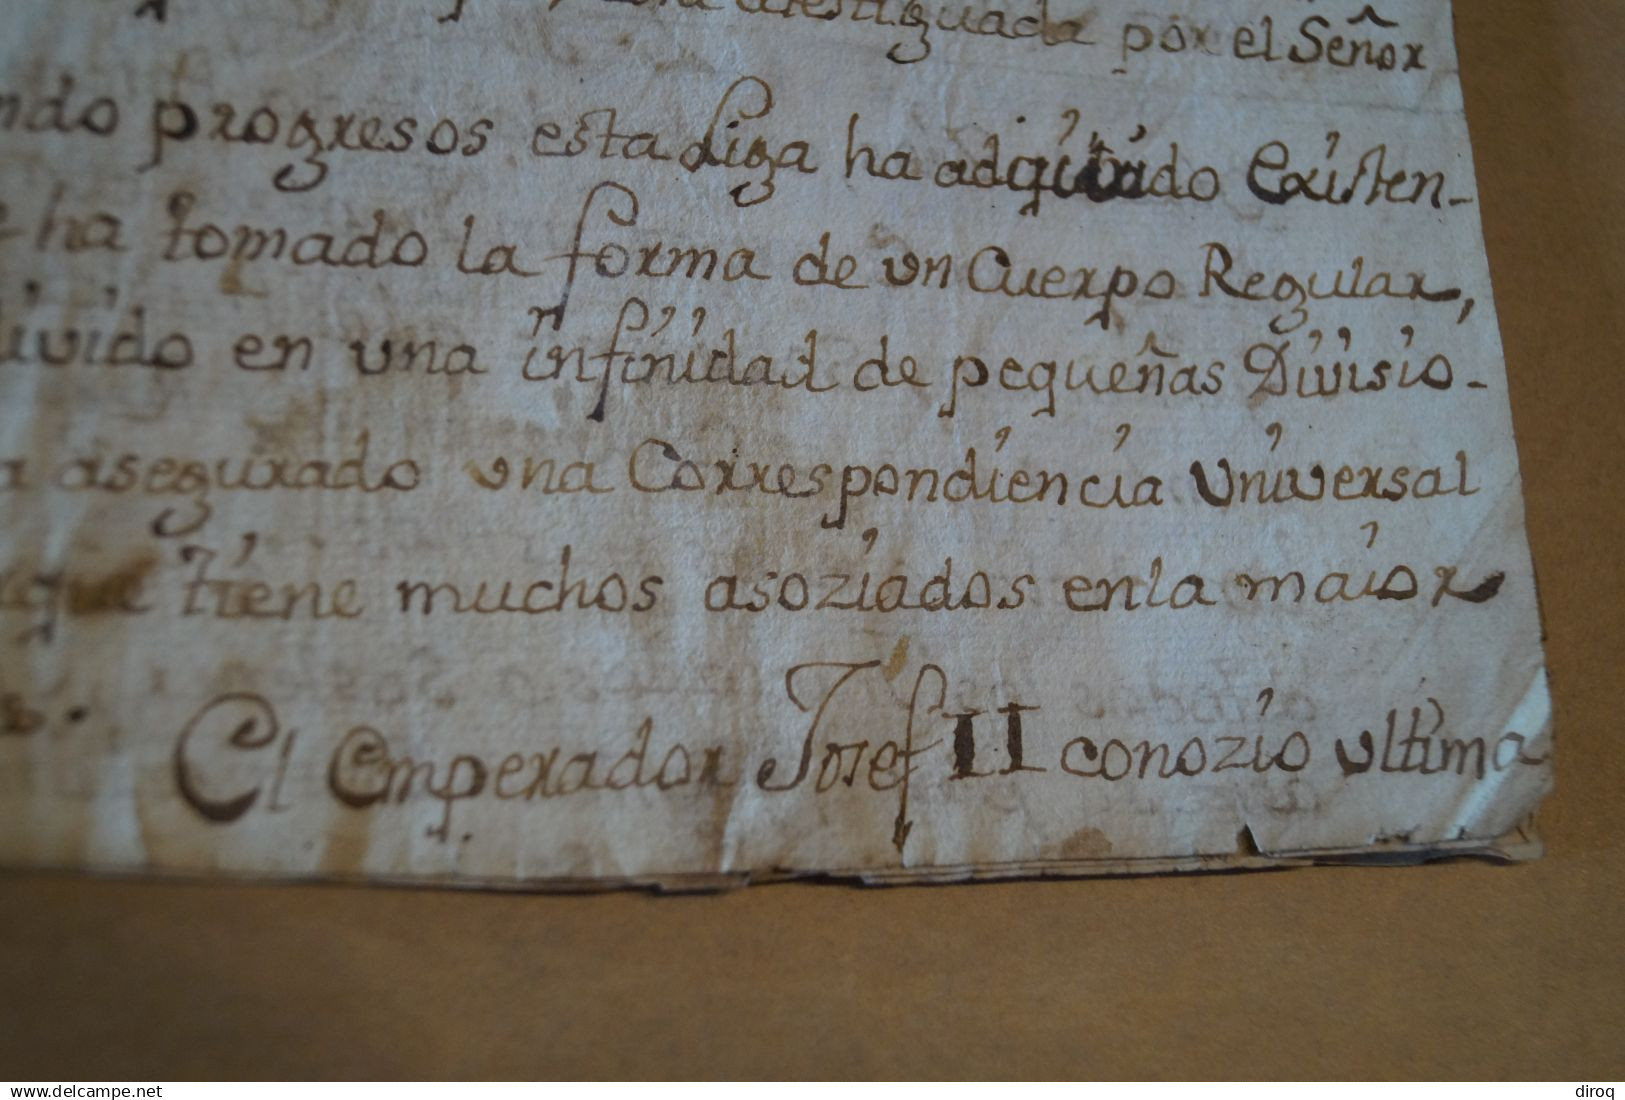 atestiguada por el Señor
ndo progresos esta Liga ha adquirido Existen-
ha tomado la forma de un Cuerpo Regular,
divido en una infinidad de pequeñas Divisio-
a asegurado una Correspondiencia Universal
que tiene muchos asoziados en la maior
El Emperador Josef II conozio ultima
www.delcampe.net
diroq